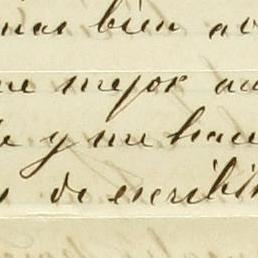 mas bien
mejor
y me hace
de escribi